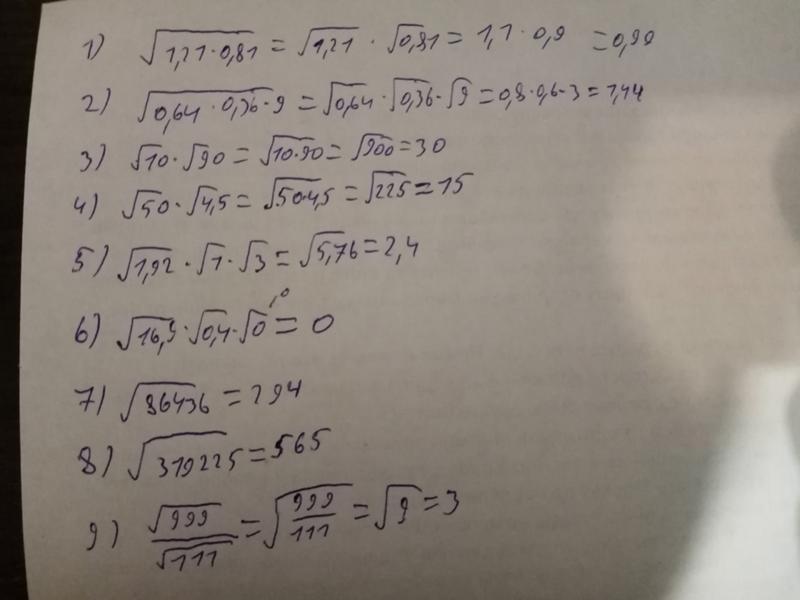 1) √(1,21·0,81) = √1,21 · √0,81 = 1,1 · 0,9 = 0,99
2) √(0,64·0,36·9) = √0,64 · √0,36 · √9 = 0,8·0,6·3 = 1,44
3) √10 · √90 = √(10·90) = √900 = 30
4) √50 · √4,5 = √(50·4,5) = √225 = 15
5) √1,92 · √1 · √3 = √5,76 = 2,4
6) √16,9 · √0,4 · √0 = 0
7) √86436 = 294
8) √319225 = 565
9) √999/√111 = √(999/111) = √9 = 3